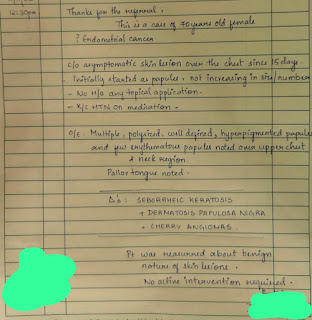 12:30pm
Thanks for the referral.
This is a case of 70 years old female
? Endometrial cancer
c/o asymptomatic skin lesion over the chest since 15 days.
- Initially started as papules, not increasing in size/number
- No H/o any topical application.
- K/C HTN on medication -
O/E: Multiple, polysized, well defined, hyperpigmented papules
and few erythmatous papules noted over upper chest
& neck region
Pallor tongue noted.
SEBORRHEIC KERATOSIS
+ DERMATOSIS PAPULOSA NIGRA
+ CHERRY ANGIOMAS
Pt was reassured about benign
nature of skin lesions.
No active intervention required.